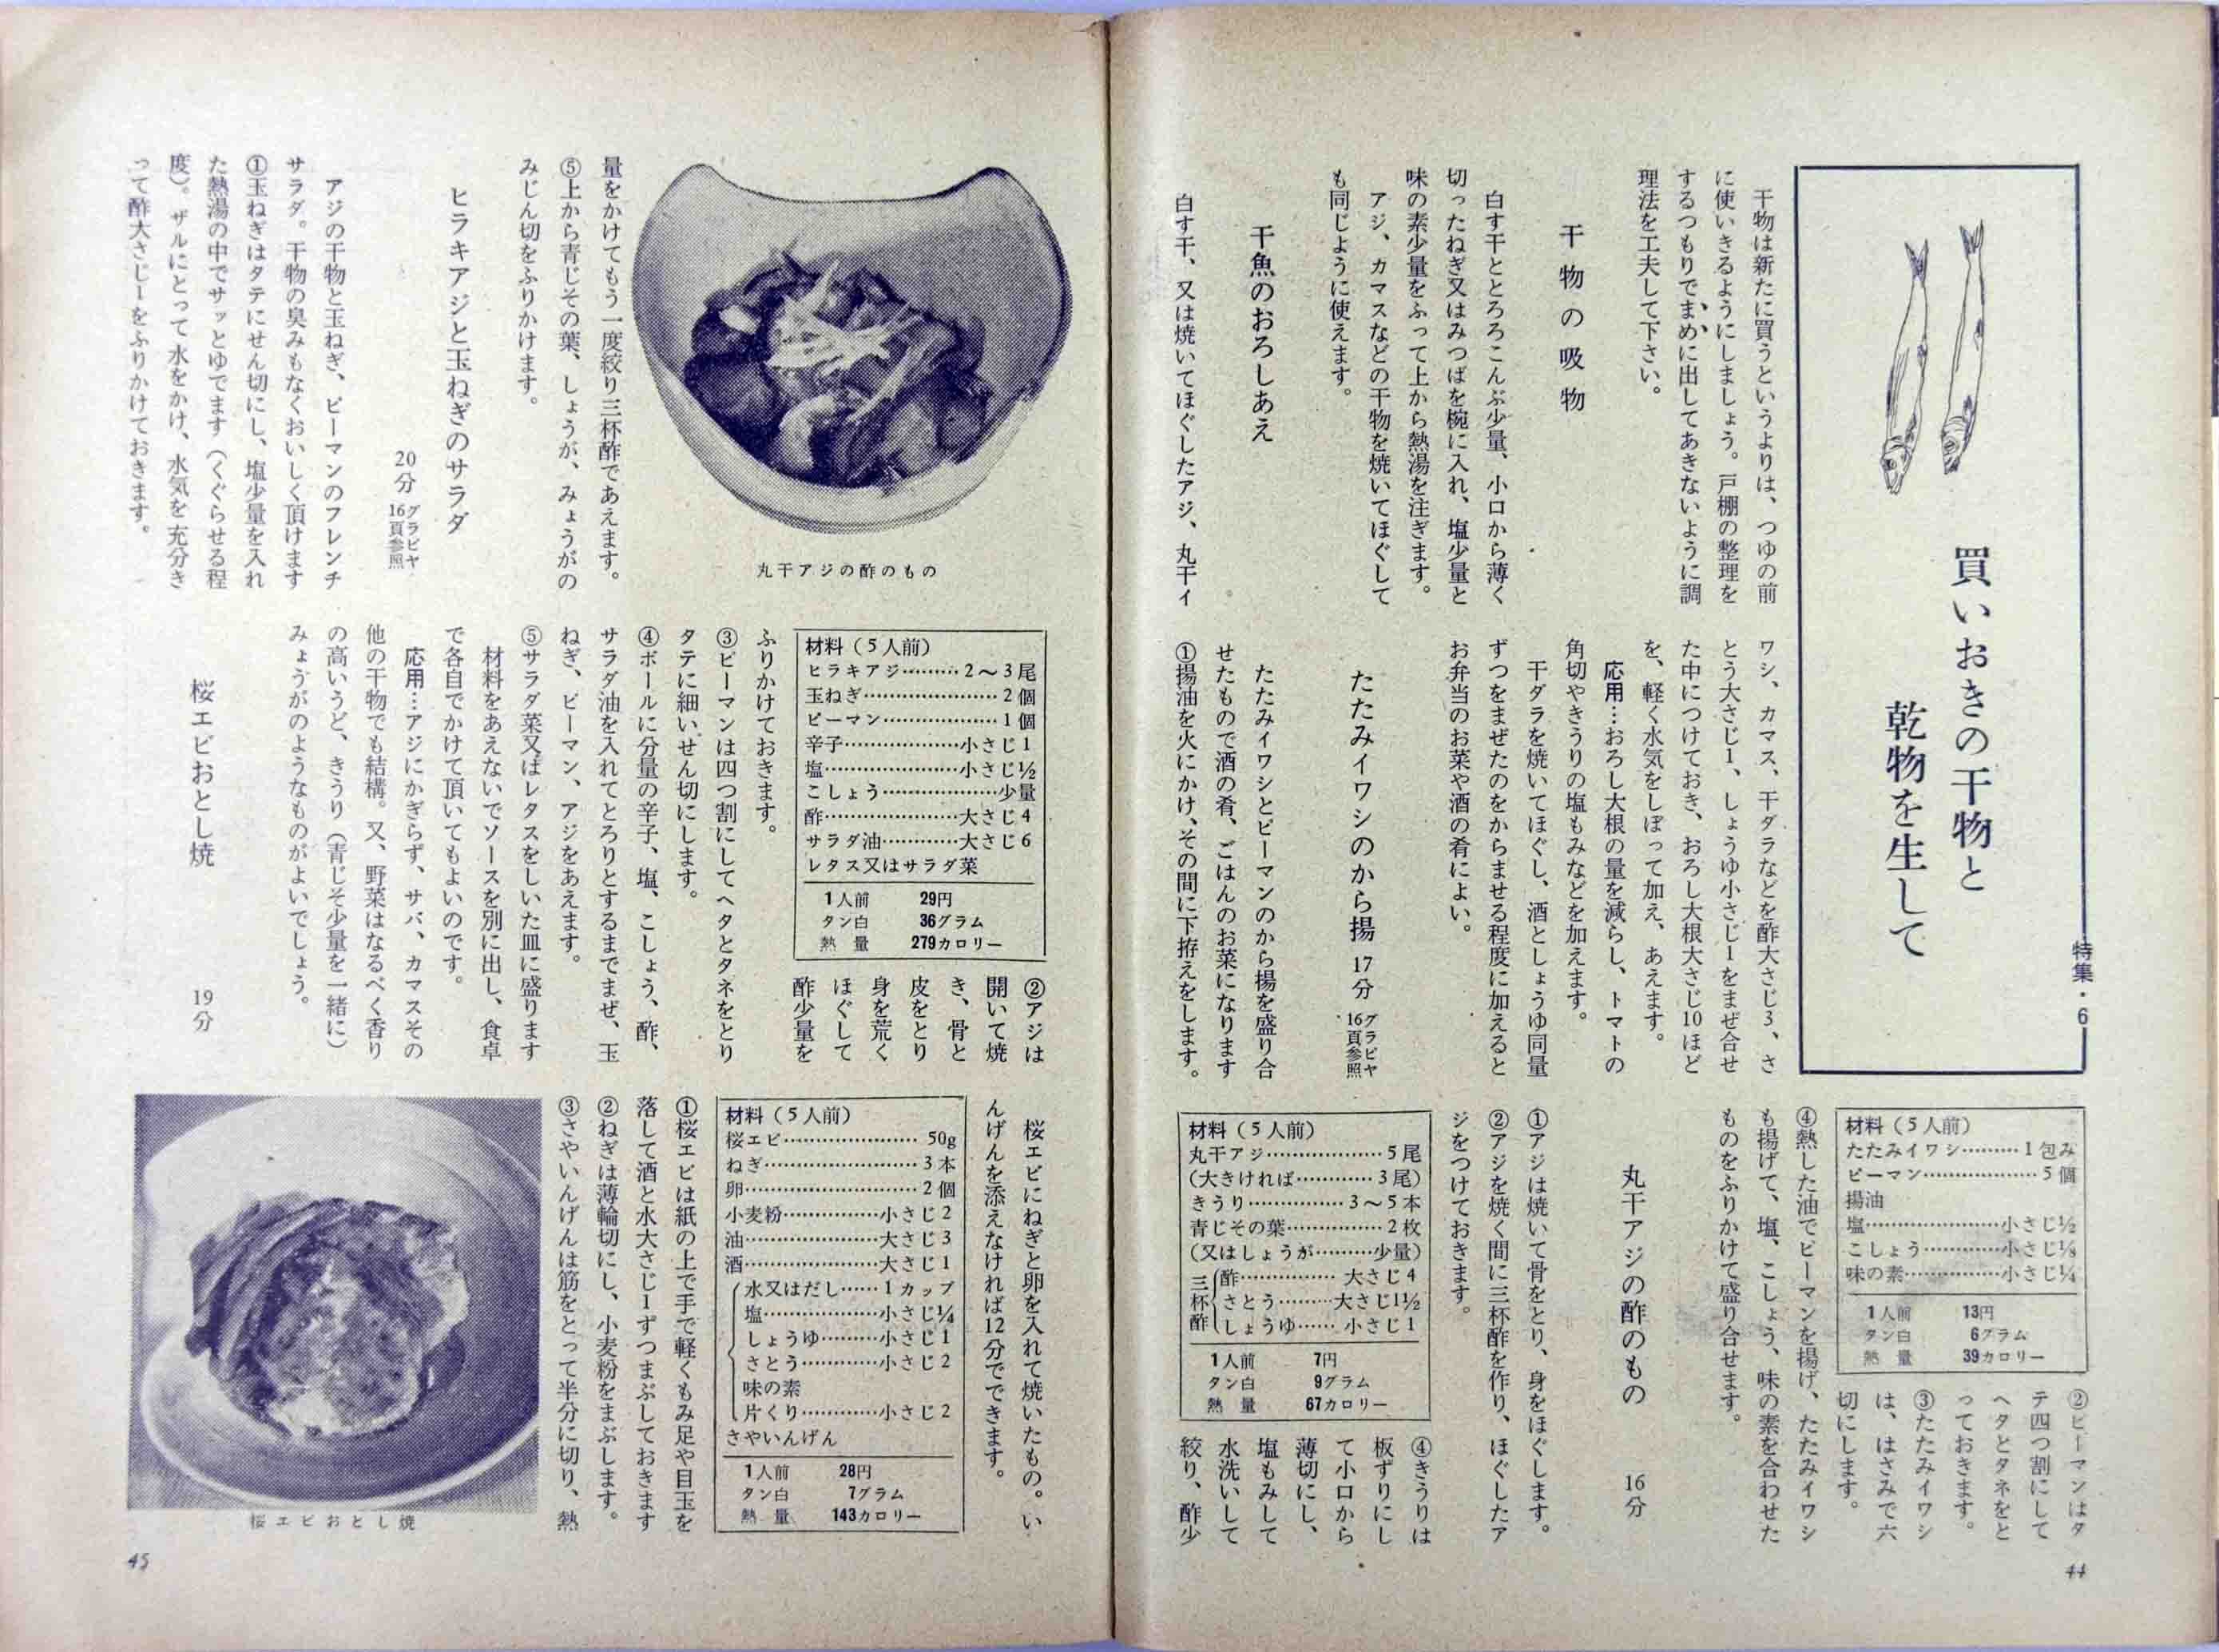 特集・6
買いおきの干物と
乾物を生して
干物は新たに買うというよりは、つゆの前
に使いきるようにしましょう。戸棚の整理を
するつもりでまめに出してあきないように調
理法を工夫して下さい。
干物の吸物
白す干ととろろこんぶ少量、小口から薄く
切ったねぎ又はみつばを椀に入れ、塩少量と
味の素少量をふって上から熱湯を注ぎます。
アジ、カマスなどの干物を焼いてほぐして
も同じように使えます。
干魚のおろしあえ
白す干、又は焼いてほぐしたアジ、丸干イ
ワシ、カマス、干ダラなどを酢大さじ3、さ
とう大さじ1、しょうゆ小さじ1をまぜ合せ
た中につけておき、おろし大根大さじ10ほど
を、軽く水気をしぼって加え、あえます。
応用…おろし大根の量を減らし、トマトの
角切やきうりの塩もみなどを加えます。
干ダラを焼いてほぐし、酒としょうゆ同量
ずつをまぜたのをからませる程度に加えると
お弁当のお菜や酒の肴によい。
たたみイワシのから揚 17分 グラビヤ16頁参照
たたみイワシとピーマンのから揚を盛り合
せたもので酒の肴、ごはんのお菜になります
①揚油を火にかけ、その間に下拵えをします。
材料（5人前）
たたみイワシ………1包み
ピーマン………………5個
揚油
塩…………………小さじ½
こしょう…………小さじ⅛
味の素……………小さじ¼
1人前 13円
タン白 6グラム
熱量 39カロリー
②ピーマンはタ
テ四つ割にして
ヘタとタネをと
っておきます。
③たたみイワシ
は、はさみで六
切にします。
④熱した油でピーマンを揚げ、たたみイワシ
も揚げて、塩、こしょう、味の素を合わせた
ものをふりかけて盛り合せます。
丸干アジの酢のもの 16分
①アジは焼いて骨をとり、身をほぐします。
②アジを焼く間に三杯酢を作り、ほぐしたア
ジをつけておきます。
材料（5人前）
丸干アジ………………5尾
（大きければ…………3尾）
きうり……………3〜5本
青じその葉……………2枚
（又はしょうが………少量）
三杯酢
酢……………大さじ4
さとう………大さじ1½
しょうゆ……小さじ1
1人前 7円
タン白 9グラム
熱量 67カロリー
④きうりは
板ずりにし
て小口から
薄切にし、
塩もみして
水洗いして
絞り、酢少
44
丸干アジの酢のもの
量をかけてもう一度絞り三杯酢であえます。
⑤上から青じその葉、しょうが、みょうがの
みじん切をふりかけます。
ヒラキアジと玉ねぎのサラダ
20分 グラビヤ16頁参照
アジの干物と玉ねぎ、ピーマンのフレンチ
サラダ。干物の臭みもなくおいしく頂けます
①玉ねぎはタテにせん切にし、塩少量を入れ
た熱湯の中でサッとゆでます（くぐらせる程
度）。ザルにとって水をかけ、水気を充分き
って酢大さじ1をふりかけておきます。
材料（5人前）
ヒラキアジ………2〜3尾
玉ねぎ…………………2個
ピーマン………………1個
辛子………………小さじ1
塩…………………小さじ½
こしょう………………少量
酢…………………大さじ4
サラダ油…………大さじ6
レタス又はサラダ菜
1人前 29円
タン白 36グラム
熱量 279カロリー
②アジは
開いて焼
き、骨と
皮をとり
身を荒く
ほぐして
酢少量を
ふりかけておきます。
③ピーマンは四つ割にしてヘタとタネをとり
タテに細いせん切にします。
④ボールに分量の辛子、塩、こしょう、酢、
サラダ油を入れてとろりとするまでまぜ、玉
ねぎ、ピーマン、アジをあえます。
⑤サラダ菜又はレタスをしいた皿に盛ります
材料をあえないでソースを別に出し、食卓
で各自でかけて頂いてもよいのです。
応用…アジにかぎらず、サバ、カマスその
他の干物でも結構。又、野菜はなるべく香り
の高いうど、きうり（青じそ少量を一緒に）
みょうがのようなものがよいでしょう。
桜エビおとし焼 19分
桜エビにねぎと卵を入れて焼いたもの。い
んげんを添えなければ12分でできます。
材料（5人前）
桜エビ…………………50g
ねぎ……………………3本
卵………………………2個
小麦粉……………小さじ2
油…………………大さじ3
酒…………………大さじ1
水又はだし……1カップ
塩………………小さじ¼
しょうゆ………小さじ1
さとう…………小さじ2
味の素
片くり…………小さじ2
さやいんげん
1人前 28円
タン白 7グラム
熱量 143カロリー
①桜エビは紙の上で手で軽くもみ足や目玉を
落して酒と水大さじ1ずつまぶしておきます
②ねぎは薄輪切にし、小麦粉をまぶします。
③さやいんげんは筋をとって半分に切り、熱
桜エビおとし焼
45